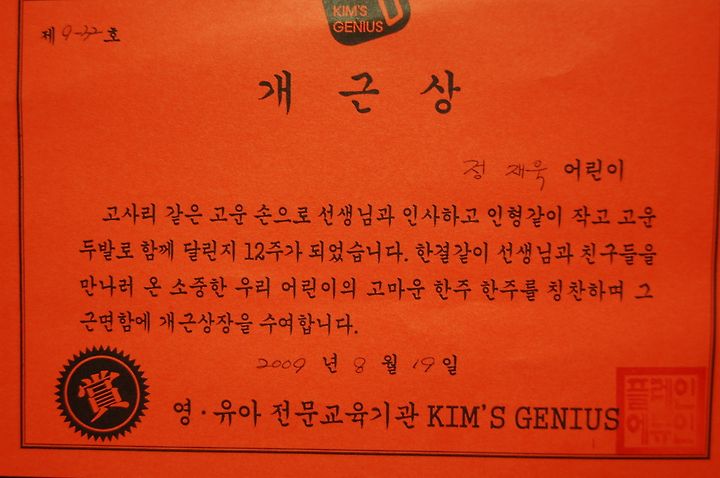 KIM'S
GENIUS
제 9-32 호
개 근 상
정 재욱 어린이
고사리 같은 고운 손으로 선생님과 인사하고 인형같이 작고 고운
두발로 함께 달린지 12주가 되었습니다. 한결같이 선생님과 친구들을
만나러 온 소중한 우리 어린이의 고마운 한주 한주를 칭찬하며 그
근면함에 개근상장을 수여합니다.
2009 년 8 월 19 일
賞
영·유아 전문교육기관 KIM'S GENIUS